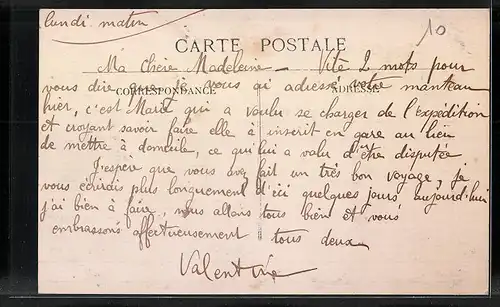 lundi matin
10
CARTE POSTALE
Ma Chère Madeleine – Vite 2 mots pour
vous dire que je vous ai adressé votre manteau
CORRESPONDANCE ADRESSE
hier, c'est Marie qui a voulu se charger de l'expédition
et croyant savoir faire elle à inscrit en gare au lieu
de mettre à domicile, ce qui lui a valu d'être disputée
J'espère que vous avez fait un très bon voyage, je
vous écrirais plus longuement d'ici quelques jours aujourd'hui
j'ai bien à faire, nous allons tous bien et vous
embrassons affectueusement tous deux
Valentine